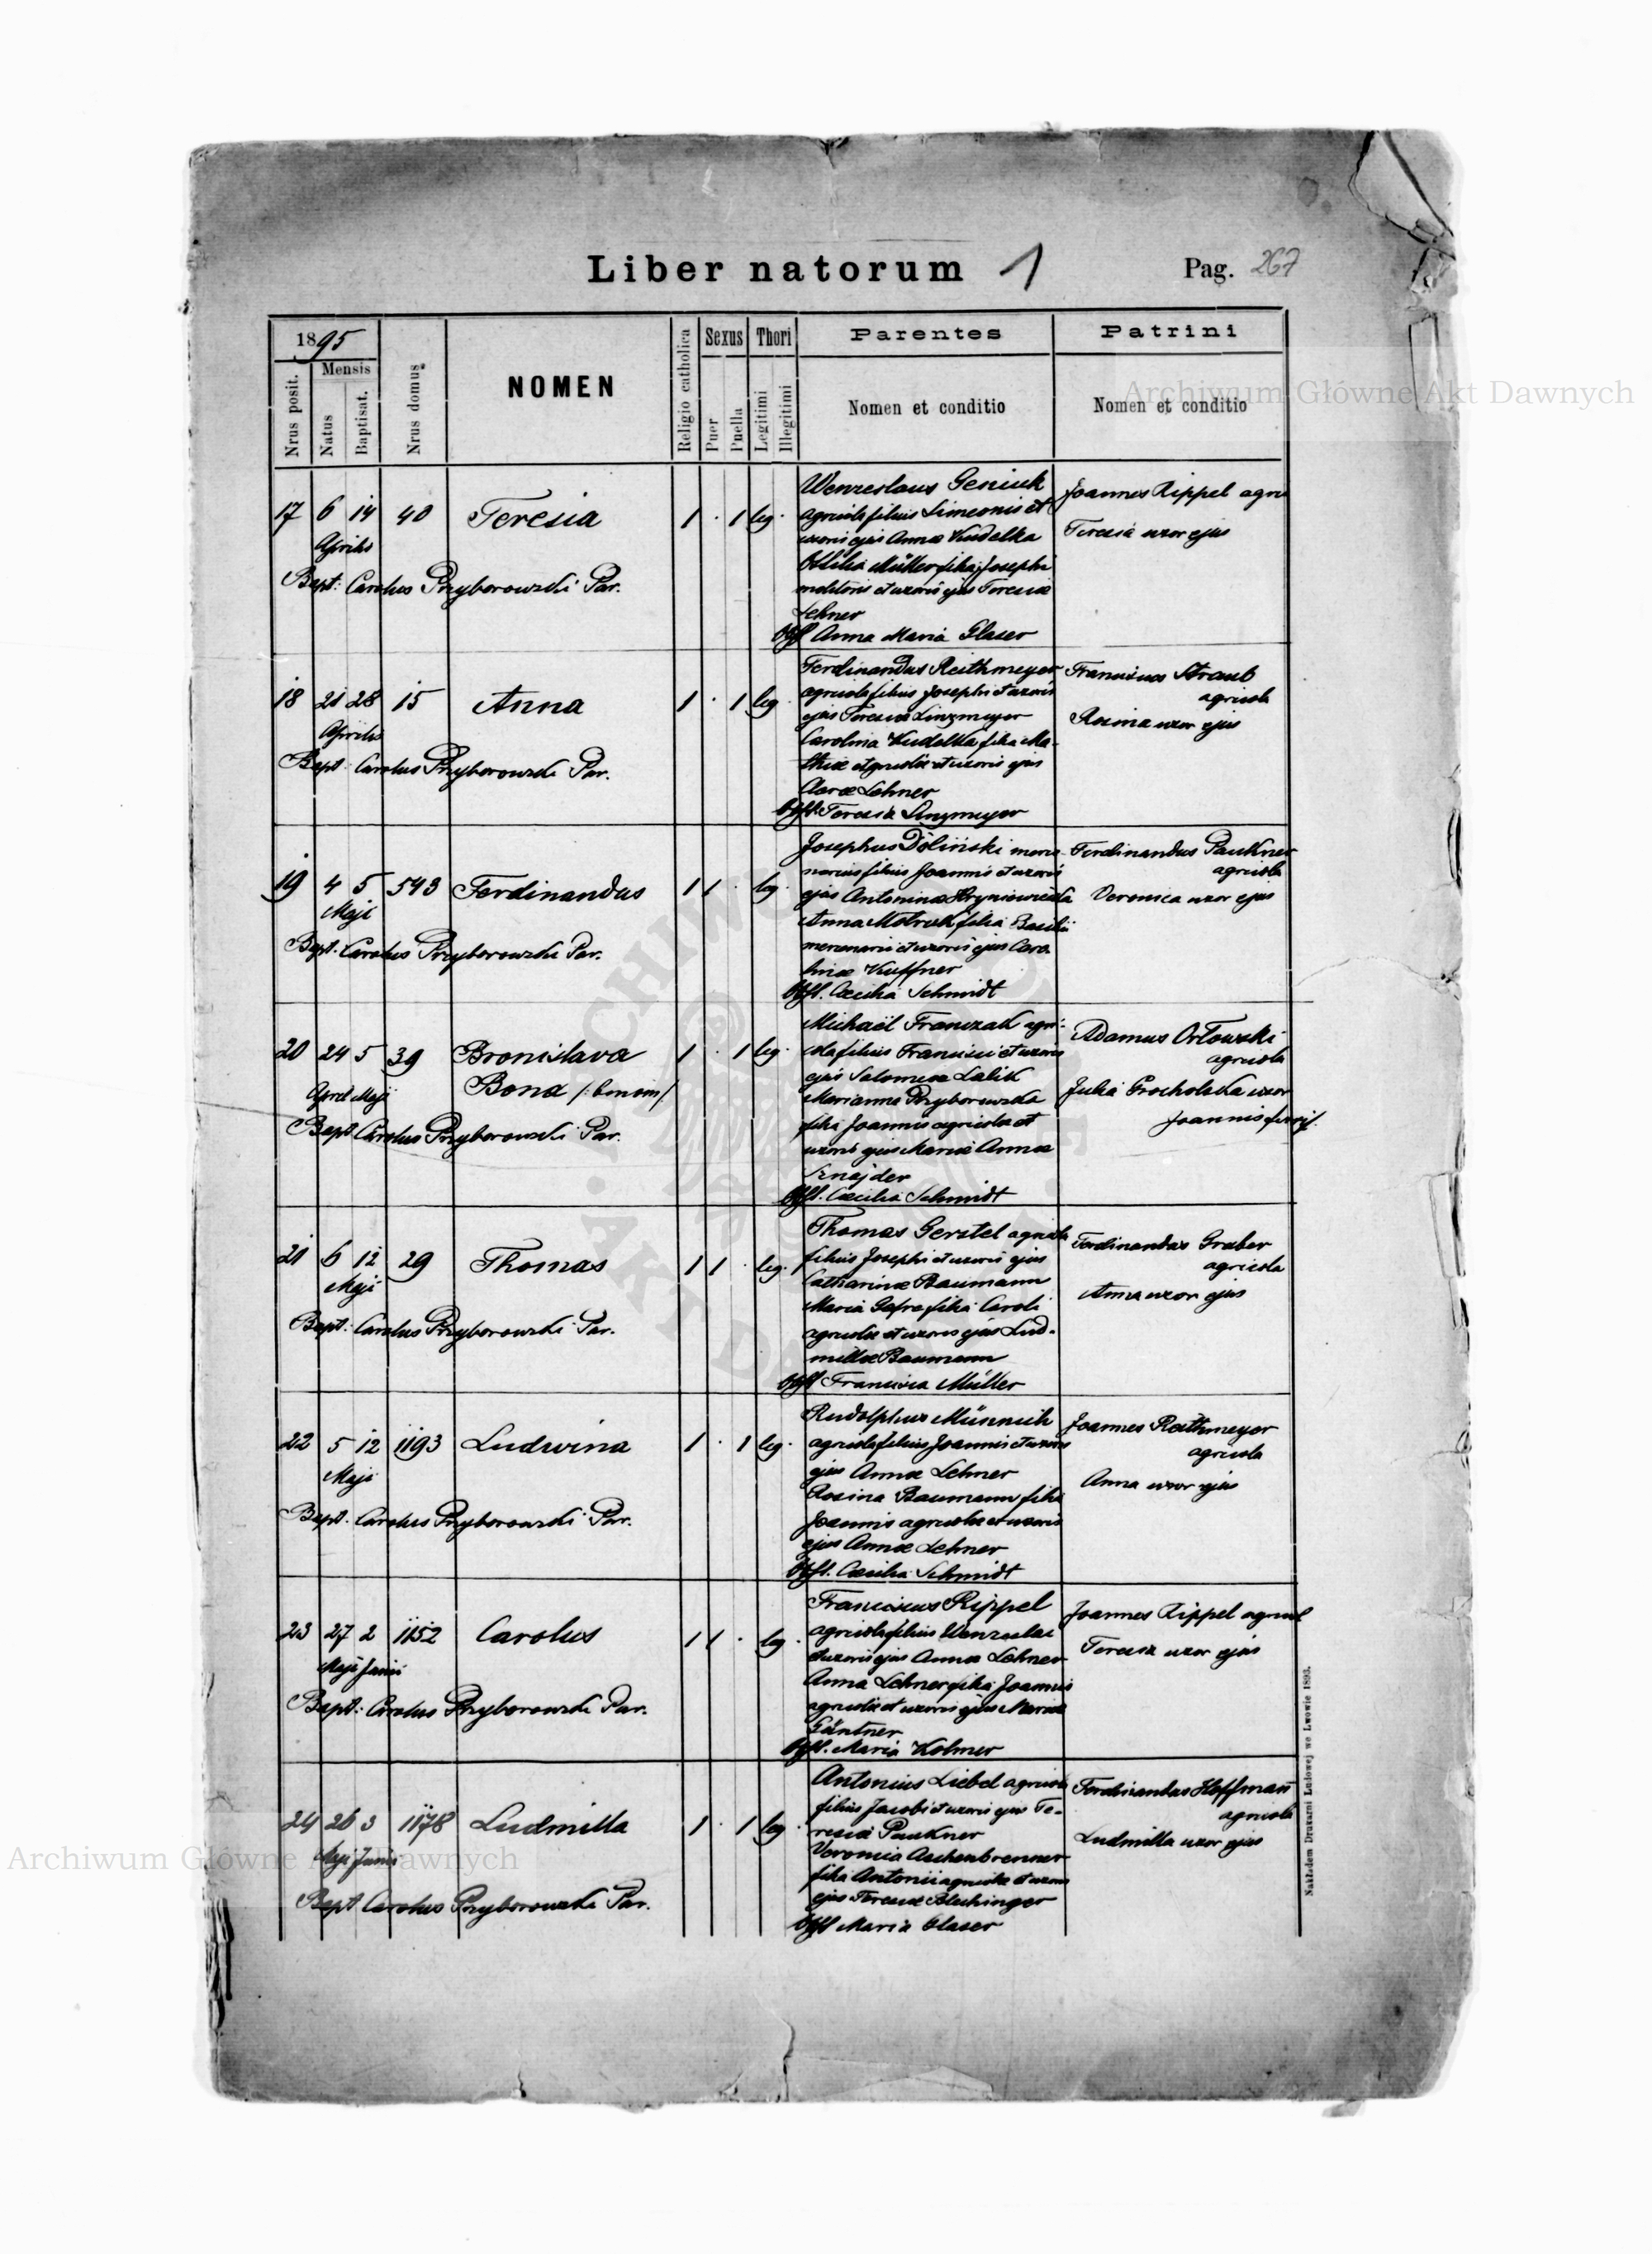 Liber natorum 1 Pag. 267
1895
Mensis
Nrus posit.
Natus
Baptisat.
Nrus domus
NOMEN
Religio catholica
Sexus
Puer
Puella
Thori
Legitimi
Illegitimi
Parentes
Nomen et conditio
Patrini
Nomen et conditio
Archiwum Główne Akt Dawnych
17 6 14 40 Teresia 1 · 1 leg.
Aprilis
Bapt: Carolus Przyborowski Par.
Wenzeslaus Geniuk
agricola filius Simeonis et
uxoris ejus Annæ Kudelka
Ottilia Müller filia Josephi
molitoris et uxoris ejus Teresiæ
Lehner
Obst. Anna Maria Glaser
Joannes Rippel agri
Teresia uxor ejus
18 21 28 15 Anna 1 · 1 leg.
Aprilis
Bapt: Carolus Przyborowski Par.
Ferdinandus Reithmeyer
agricola filius Josephi et uxoris
ejus Teresiæ Linzmeyer
Carolina Kudelka filia Ma-
thiæ agricolæ et uxoris ejus
Claræ Lehner
Obst. Teresia Linzmeyer
Franciscus Straub
agricola
Rosina uxor ejus
19 4 5 543 Ferdinandus 1 1 · leg.
Maji
Bapt: Carolus Przyborowski Par.
Josephus Doliński merce-
narius filius Joannis et uxoris
ejus Antoninæ Hryniowiecka
Anna Motruk filia Basilii
mercenarii et uxoris ejus Caro-
linæ Kuffner
Obst. Cæcilia Schmidt
Ferdinandus Paukner
agricola
Veronica uxor ejus
20 24 5 39 Bronislava 1 · 1 leg.
April Maji Bona /:binom:/
Bapt Carolus Przyborowski Par.
Michaël Franczak agri-
cola filius Francisci et uxoris
ejus Salomeæ Lalik
Marianna Przyborowska
filia Joannis agricolæ et
uxoris ejus Mariæ Annæ
Sznajder
Obst. Cæcilia Schmidt
Adamus Orłowski
agricola
Julia Grocholska uxor
Joannis
21 6 12 29 Thomas 1 1 · leg.
Maji
Bapt: Carolus Przyborowski Par.
Thomas Gerstel agricola
filius Josephi et uxoris ejus
Catharinæ Baumann
Maria filia Caroli
agricolæ et uxoris ejus Lud-
millæ Baumann
Obst Francisca Müller
Ferdinandus Graber
agricola
Anna uxor ejus
22 5 12 1193 Ludwina 1 · 1 leg.
Maji
Bapt. Carolus Przyborowski Par.
Rudolphus Münnich
agricola filius Joannis et uxoris
ejus Annæ Lehner
Rosina Baumann filia
Joannis agricolæ et uxoris
ejus Annæ Lehner
Obst. Cæcilia Schmidt
Joannes Reithmeyer
agricola
Anna uxor ejus
23 27 2 1152 Carolus 1 1 · leg.
Maji Junii
Bapt: Carolus Przyborowski Par.
Franciscus Rippel
agricola filius Wenzeslai
et uxoris ejus Annæ Lehner
Anna Lehner filia Joannis
agricolæ et uxoris ejus Mariæ
Gäntner
Obst. Maria Kolmer
Joannes Rippel agricol
Teresia uxor ejus
24 26 3 1178 Ludmilla 1 · 1 leg.
Maji Junii
Bapt Carolus Przyborowski Par.
Antonius Liebel agricola
filius Jacobi et uxoris ejus Te-
resiæ Paukner
Veronica Aschenbrenner
filia Antonii agricolæ et uxoris
ejus Teresiæ Blechinger
Obst Maria Glaser
Ferdinandus Hoffmañ
agricola
Ludmilla uxor ejus
Nakładem Drukarni Ludowej we Lwowie 1893.
Archiwum Główne Akt Dawnych